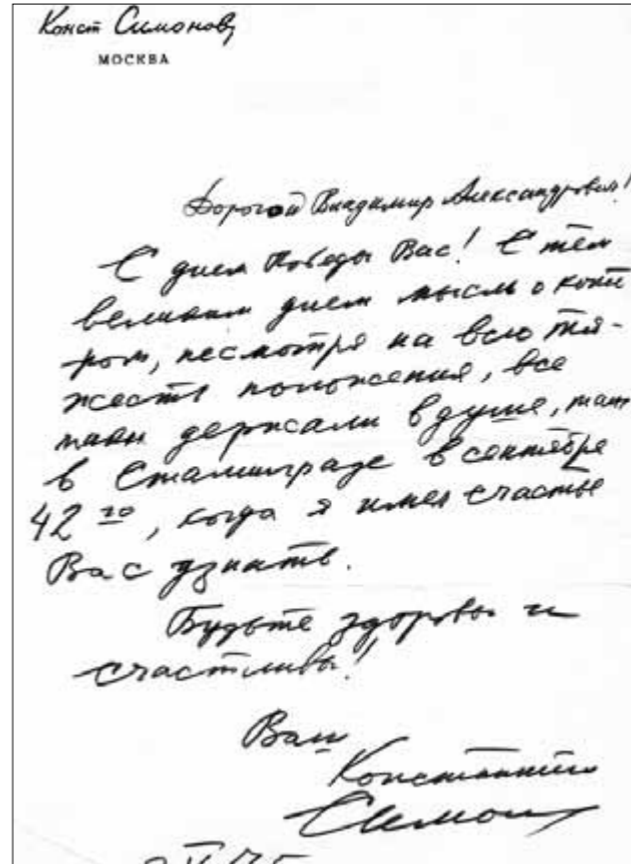 Конст Симонов
МОСКВА
Дорогой Владимир Александрович!
С днем Победы Вас! С тем
великим днем мысль о кото
ром, несмотря на всю тя-
жесть положения, все
таки держали в душе, там
в Сталинграде в сентябре
42 го, когда я имел счастье
Вас узнать.
Будьте здоровы и
счастливы!
Ваш
Константин
Симонов